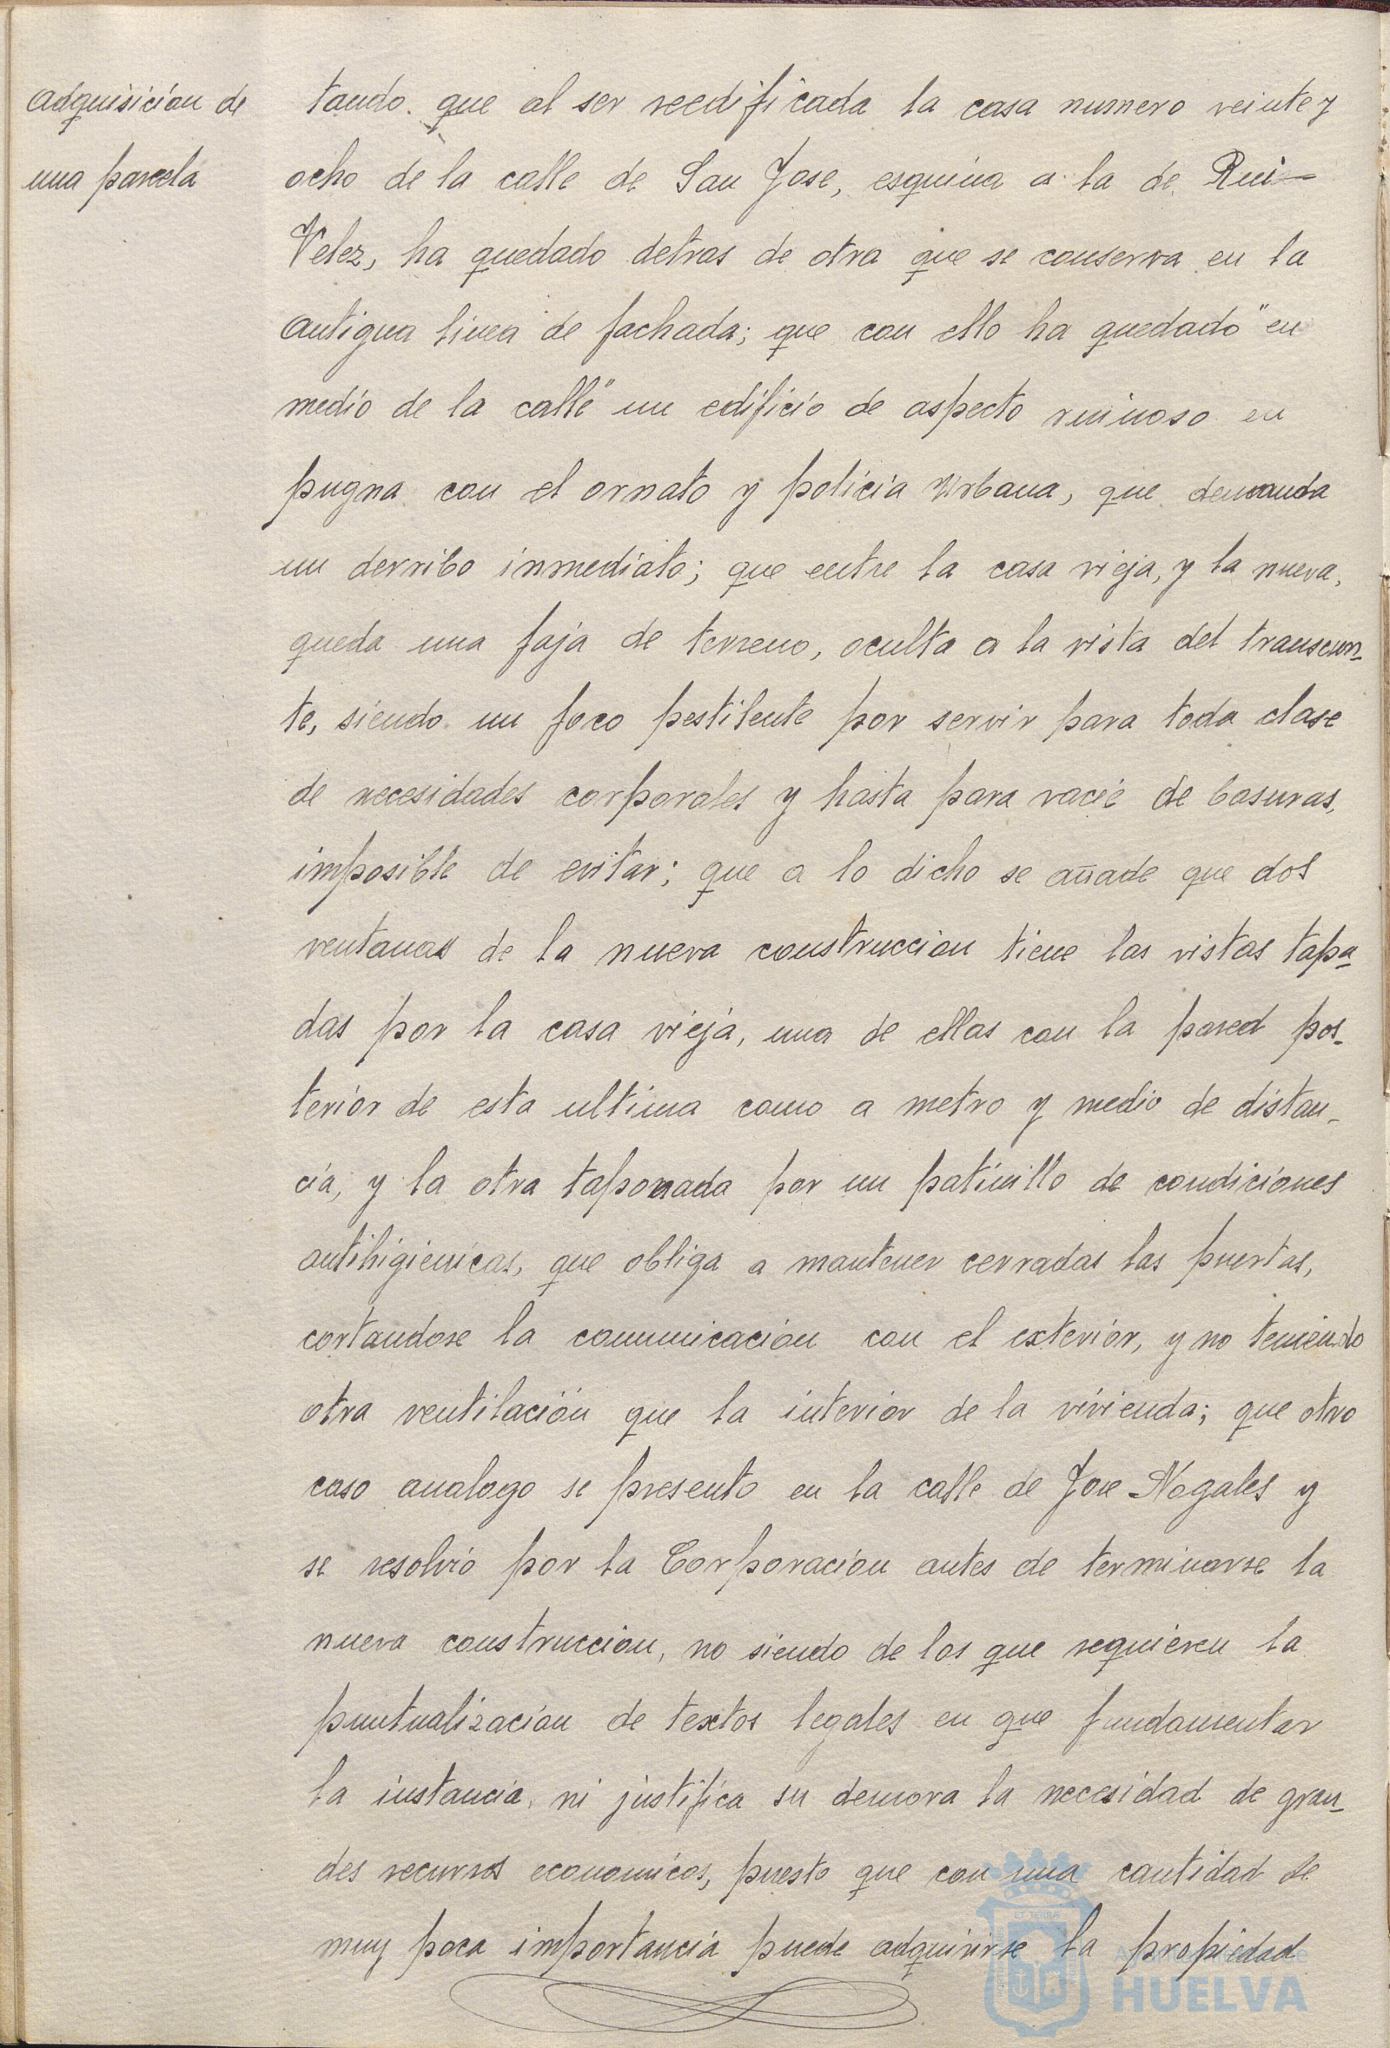 adquisición de
una parcela
tando que al ser reedificada la casa numero veinte y
ocho de la calle de San Jose, esquina a la de Rui-
Velez, ha quedado detras de otra que se conserva en la
antigua linea de fachada; que con ello ha quedado "en
medio de la calle" un edificio de aspecto ruinoso en
pugna con el ornato y policia Urbana, que demanda
un derribo inmediato; que entre la casa vieja, y la nueva,
queda una faja de terreno, oculta a la vista del transeun-
te, siendo un foco pestilente por servir para toda clase
de necesidades corporales y hasta para vacie de basuras,
imposible de evitar; que a lo dicho se añade que dos
ventanas de la nueva construccion tiene las vistas tapa-
das por la casa vieja, una de ellas con la pared pos-
terior de esta ultima como a metro y medio de distan-
cia, y la otra taponada por un patinillo de condiciones
antihigienicas, que obliga a mantener cerradas las puertas,
cortandose la comunicación con el exterior, y no teniendo
otra ventilación que la interior de la vivienda; que otro
caso analogo se presento en la calle de Jose Nogales y
se resolvió por la Corporación antes de terminarse la
nueva construccion, no siendo de los que requieren la
puntualización de textos legales en que fundamentar
la instancia, ni justifica su demora la necesidad de gran-
des recursos economicos, puesto que con una cantidad de
muy poca importancia puede adquirirse la propiedad
Ayuntamiento de
HUELVA